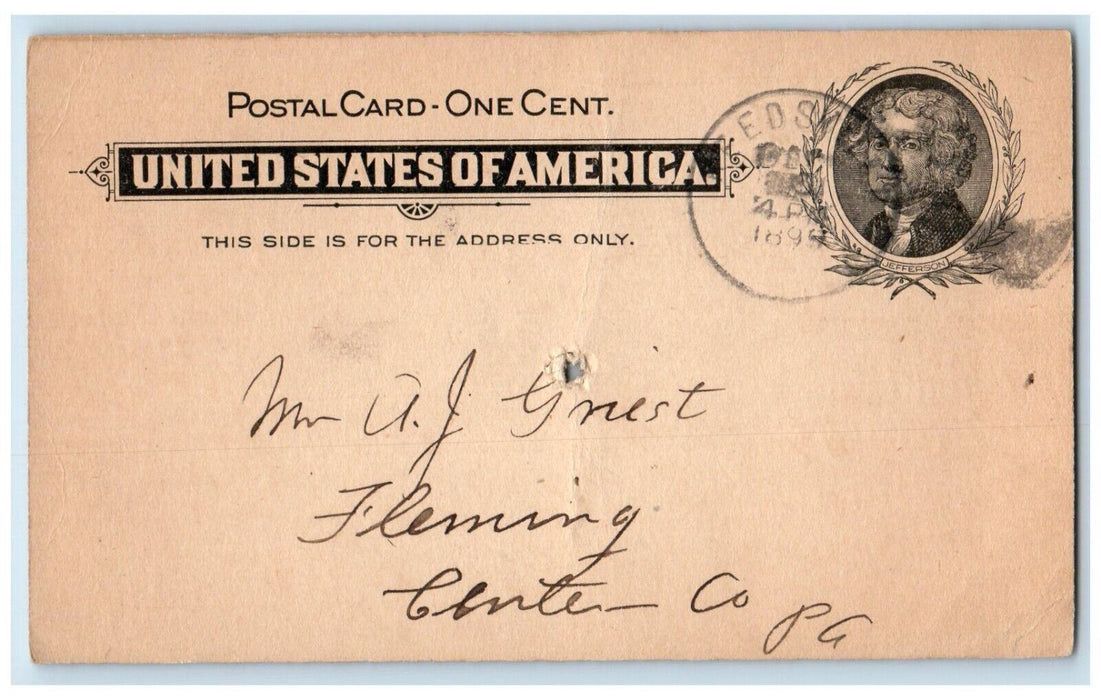 POSTAL CARD - ONE CENT.
UNITED STATES OF AMERICA.
THIS SIDE IS FOR THE ADDRESS ONLY.
EDS
4 PM
JEFFERSON
Mr A. J. Griest
Fleming
Center Co
Pa